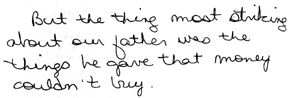 But the thing most striking
about our father was the
things he gave that money
couldn't buy.